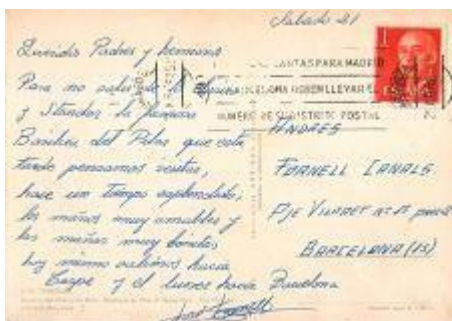 Sabado 21
Queridos Padres y hermanos
Para no salir de la
y Standar la famosa
Basilica del Pilar que esta
tarde pensamos visitar,
hace un tiempo esplendido,
los maños muy amables y
las mañas muy bonitas
hoy mismo salimos hacia
Caspe y el lunes hacia Barcelona
CARTAS PARA MADRID
BARCELONA DEBEN LLEVAR EL
NUMERO DE SU DISTRITO POSTAL
ANDRES
FORNELL CANALS
PJE VILARET Nº
BARCELONA (13)